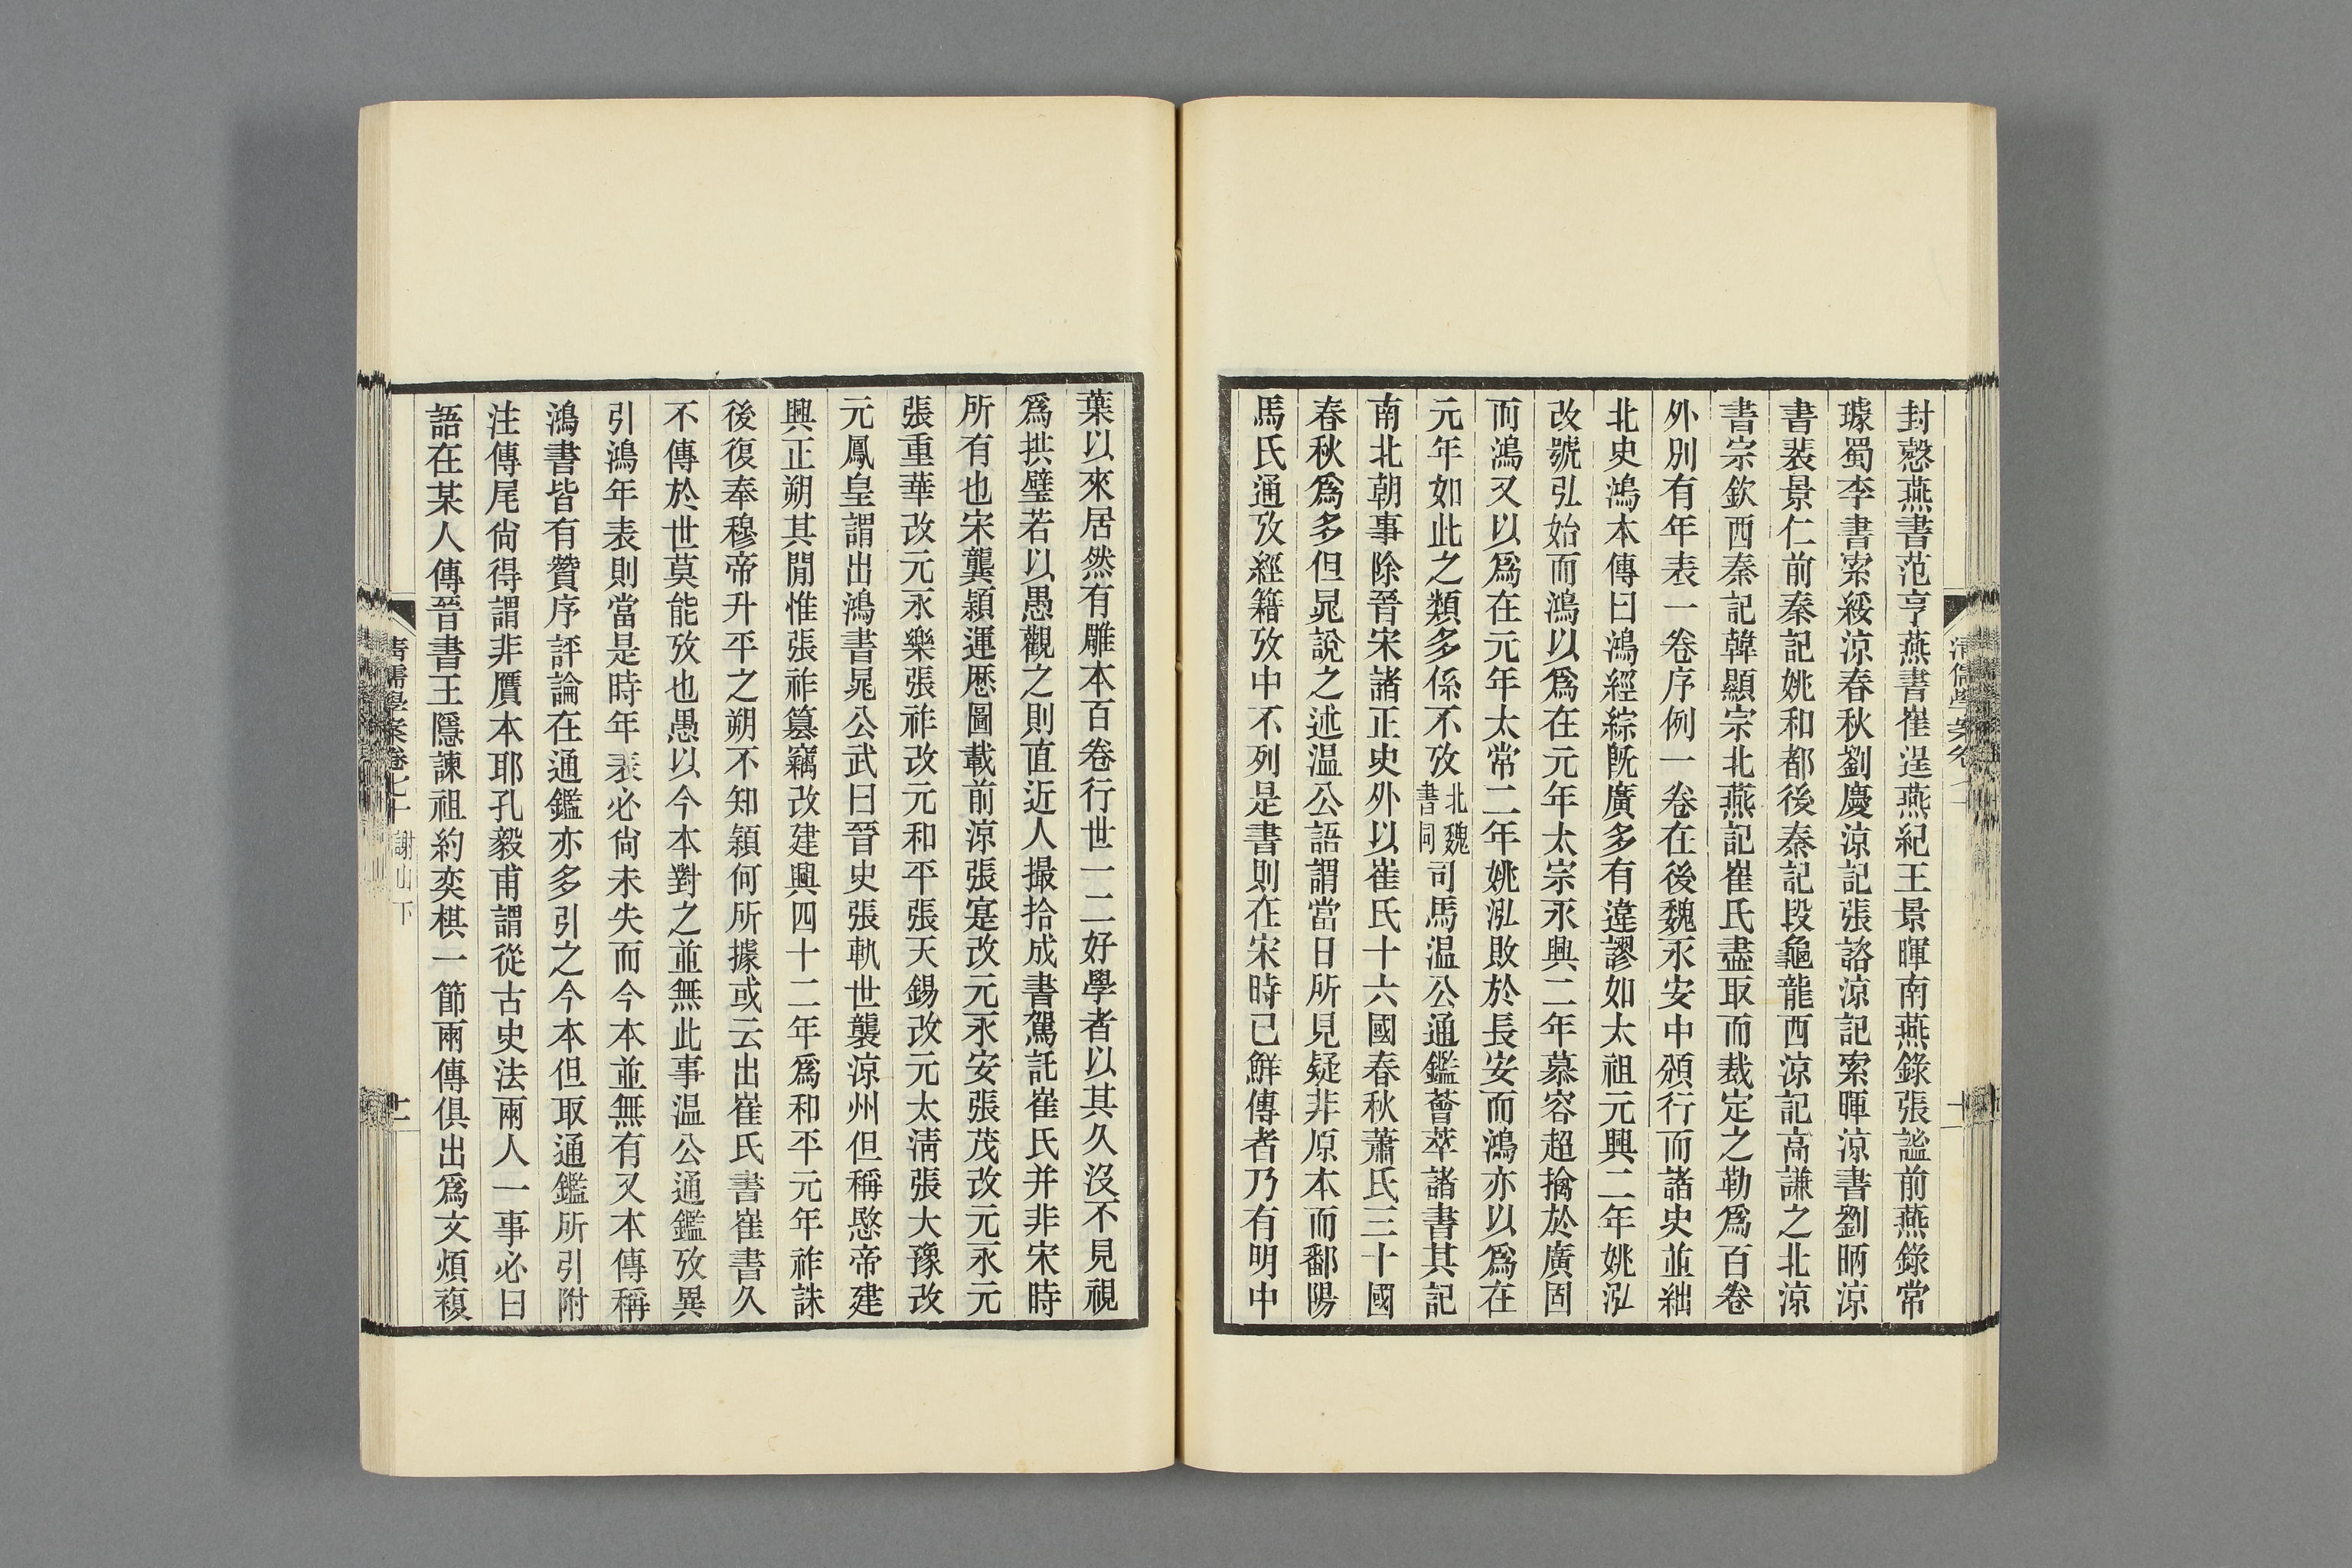 清儒學案卷七十
封愨燕書范亨燕書崔逞燕紀王景暉南燕錄張謐前燕錄常
璩蜀李書索綏涼春秋劉慶涼記張諮涼記索暉涼書劉昞涼
書裴景仁前秦記姚和都後秦記段龜龍西涼記高謙之北涼
書宗欽西秦記韓顯宗北燕記崔氏盡取而裁定之勒爲百卷
外別有年表一卷序例一卷在後魏永安中頒行而諸史並絀
北史鴻本傳曰鴻經綜旣廣多有違謬如太祖元興二年姚泓
改號弘始而鴻以爲在元年太宗永興二年慕容超擒於廣固
而鴻又以爲在元年太常二年姚泓敗於長安而鴻亦以爲在
元年如此之類多係不攷北魏書同司馬温公通鑑薈萃諸書其記
南北朝事除晉宋諸正史外以崔氏十六國春秋蕭氏三十國
春秋爲多但晁說之述温公語謂當日所見疑非原本而鄱陽
馬氏通攷經籍攷中不列是書則在宋時已鮮傳者乃有明中
葉以來居然有雕本百卷行世一二好學者以其久沒不見視
爲拱璧若以愚觀之則直近人撮拾成書駕託崔氏并非宋時
所有也宋龔穎運歷圖載前涼張寔改元永安張茂改元永元
張重華改元永樂張祚改元和平張天錫改元太淸張大豫改
元鳳皇謂出鴻書晁公武曰晉史張軌世襲涼州但稱愍帝建
興正朔其閒惟張祚篡竊改建興四十二年爲和平元年祚誅
後復奉穆帝升平之朔不知穎何所據或云出崔氏書崔書久
不傳於世莫能攷也愚以今本對之並無此事温公通鑑攷異
引鴻年表則當是時年表必尙未失而今本並無有又本傳稱
鴻書皆有贊序評論在通鑑亦多引之今本但取通鑑所引附
注傳尾尙得謂非贋本耶孔毅甫謂從古史法兩人一事必曰
語在某人傳晉書王隱諫祖約奕棋一節兩傳俱出爲文煩複
清儒學案卷七十 謝山下
二